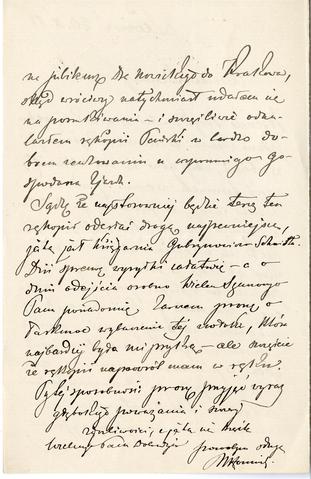 na jubileusz Dra Nowickiego do Krakowa,
skąd wróciwszy natychmiast udałem się
na poszukiwania – i szczęśliwie odna-
lazłem rękopis Pański w bardzo do-
brem zachowaniu u wspomnianego go-
spodarza
Sądzę że najstosowniej będzie teraz ten
rękopis odesłać drogą najpewniejszą,
jaką jest księgarnia Gubrynowicza Schmidta.
Dziś sprawę wysyłki załatwię – a o
dniu odejścia osobno Wielce Szanownego
Pana powiadomię zarazem proszę o
łaskawe wybaczenie tej zwłoki, która
najbardziej była mi przykrą – ale szczęście
że rękopis napowrót mam w ręku.
Przy tej sposobności proszę przyjąć wyraz
głębokiego poważania i
życzliwości, z jaką na
Wielce Pana Dobrodzieja powolny sługa